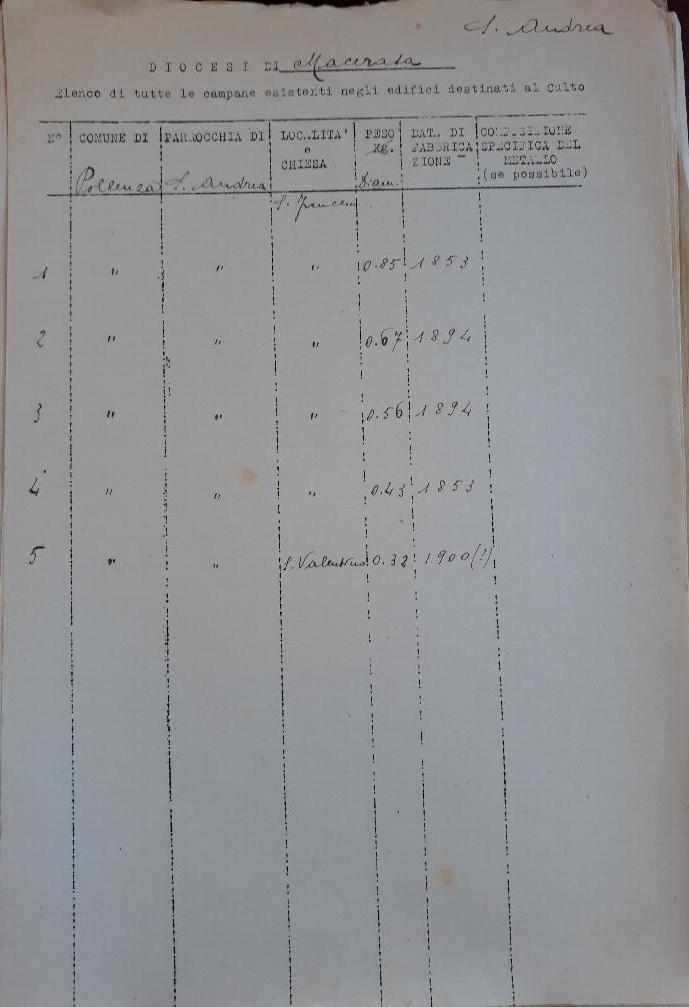 S. Andrea
DIOCESI DI Macerata
Elenco di tutte le campane esistenti negli edifici destinati al Culto
N° COMUNE DI PARROCCHIA DI LOCALITA' e CHIESA PESO Kg. DATA DI FABBRICAZIONE COMPOSIZIONE SPECIFICA DEL METALLO (se possibile)
Pollenza S. Andrea S. Francesco Diam.
1 " " " 0.85 1853
2 " " " 0.67 1894
3 " " " 0.56 1894
4 " " " 0.43 1853
5 " " S. Valentino 0.32 1900 (?)